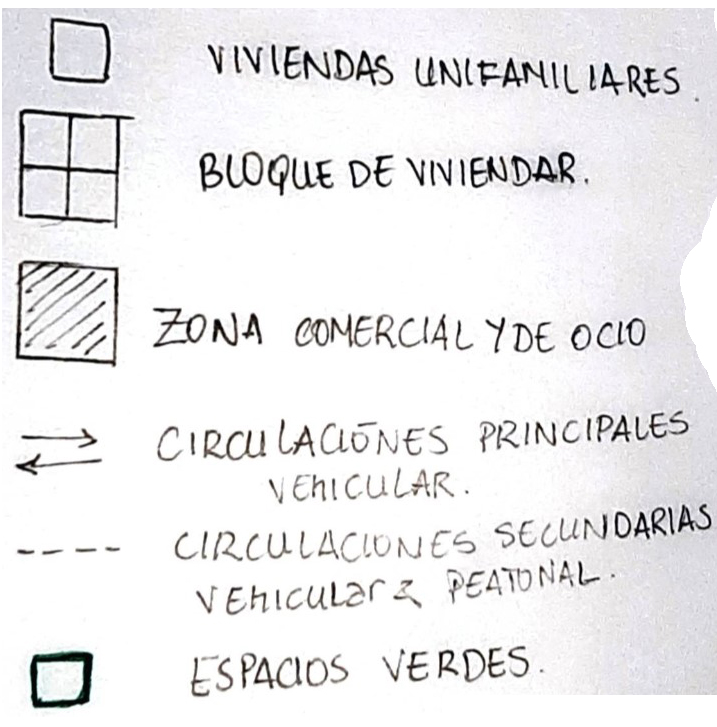 VIVIENDAS UNIFAMILIARES.
BLOQUE DE VIVIENDAR.
ZONA COMERCIAL Y DE OCIO
CIRCULACIONES PRINCIPALES
VEHICULAR.
CIRCULACIONES SECUNDARIAS
VEHICULAR & PEATONAL.
ESPACIOS VERDES.